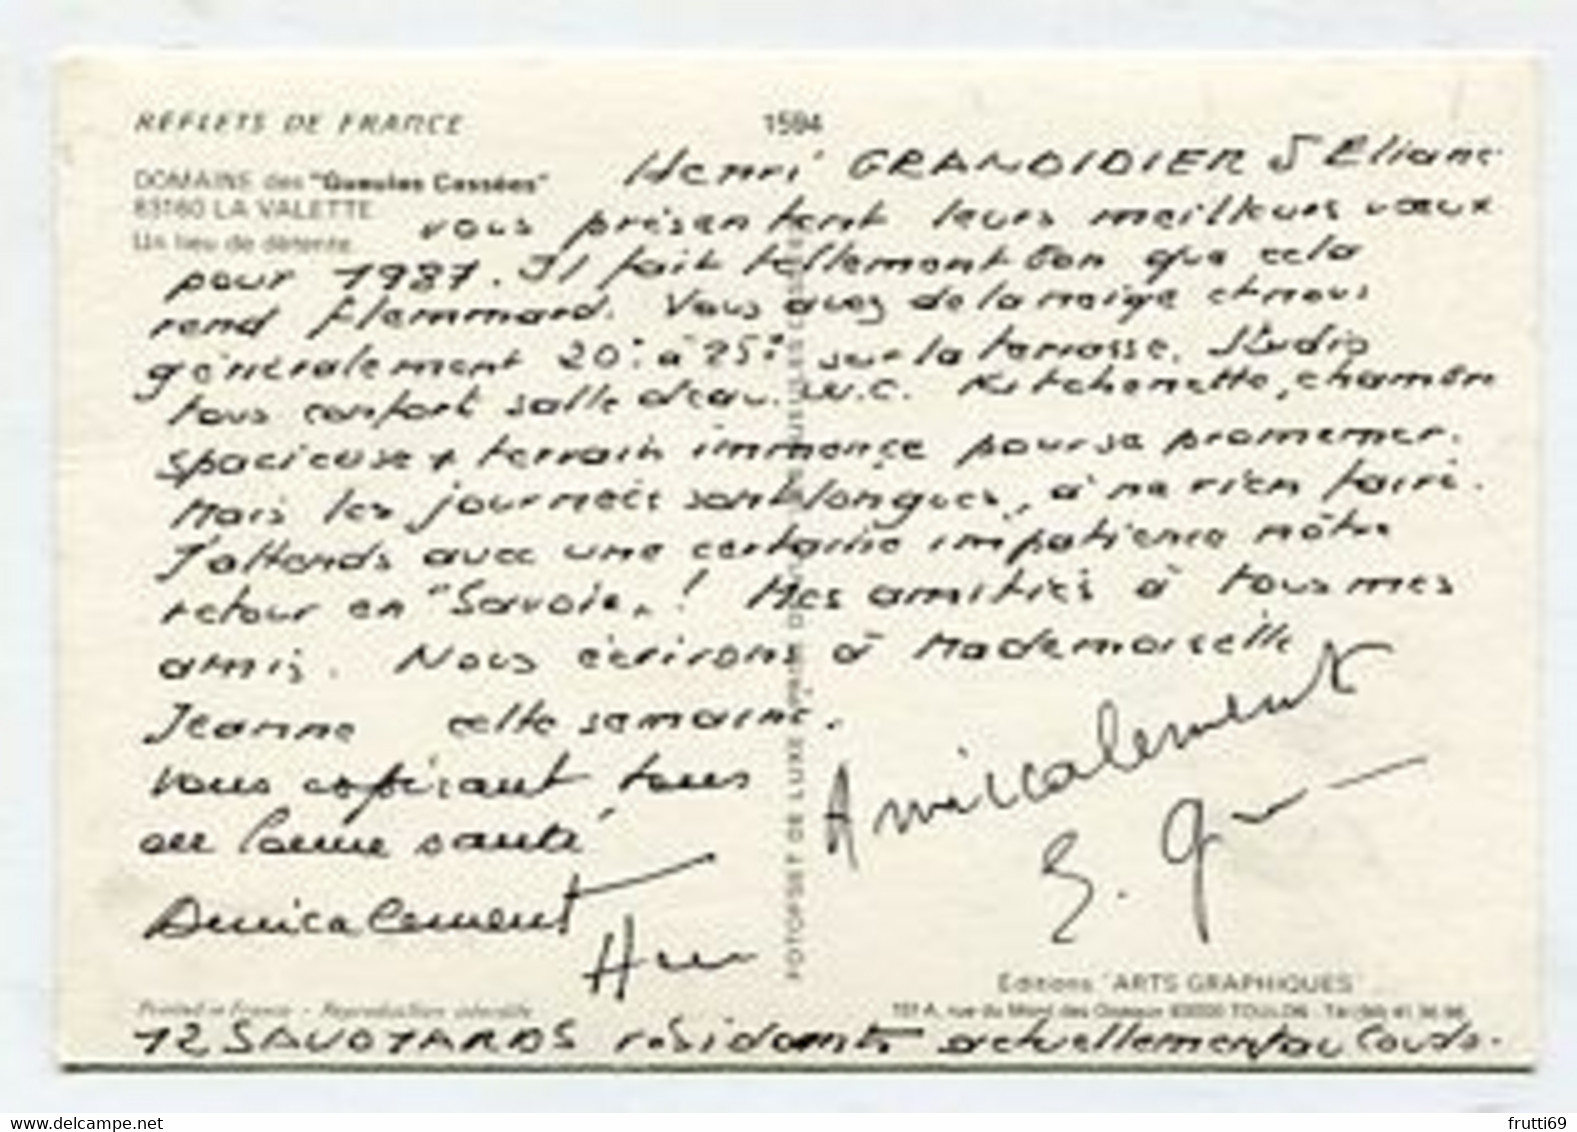 REFLETS DE FRANCE
1594
DOMAINE des "Gueules Cassées"
83160 LA VALETTE
Un lieu de détente.
Henri GRANDIDIER Eliane
vous présentent leurs meilleurs vœux
pour 1987. Il fait tellement bon que cela
rend flemmard. Vous avez de la neige et nous
généralement 20° à 25° sur la terrasse. Studio
tous confort salle d'eau. W.C. Kitchenette, chambre
spacieuse + terrain immence pour se promemer.
Mais les journées sont longues, à ne rien faire.
J'attends avec une certaine impatience nôtre
retour en "Savoie" ! Mes amitiés à tous mes
amis. Nous écrirons à Mademoiselle
Jeanne cette semaine.
Vous espérant tous
en bonne santé
Amicalement
Amicalement
FOTOFSET DE LUXE
Editions "ARTS GRAPHIQUES"
Printed in France - Reproduction interdite
rue du Mont des Oiseaux 83000 TOULON - Tél
12 SAVOYARDS résidents actuellement au Coudo.
frutti69
www.delcampe.net